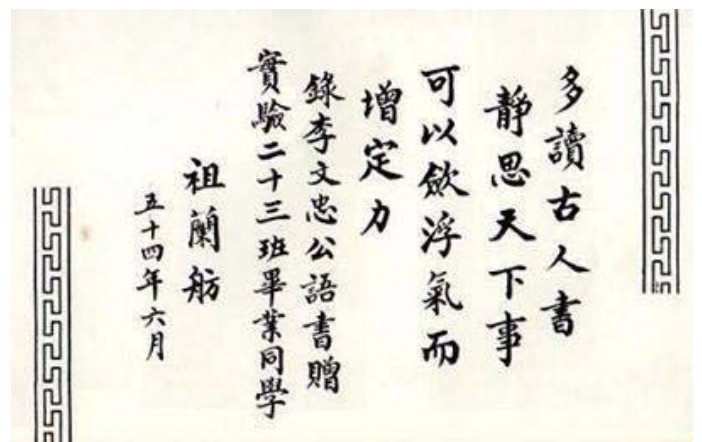 多讀古人書
靜思天下事
可以歛浮氣而
增定力
錄李文忠公語書贈
實驗二十三班畢業同學
祖蘭舫
五十四年六月